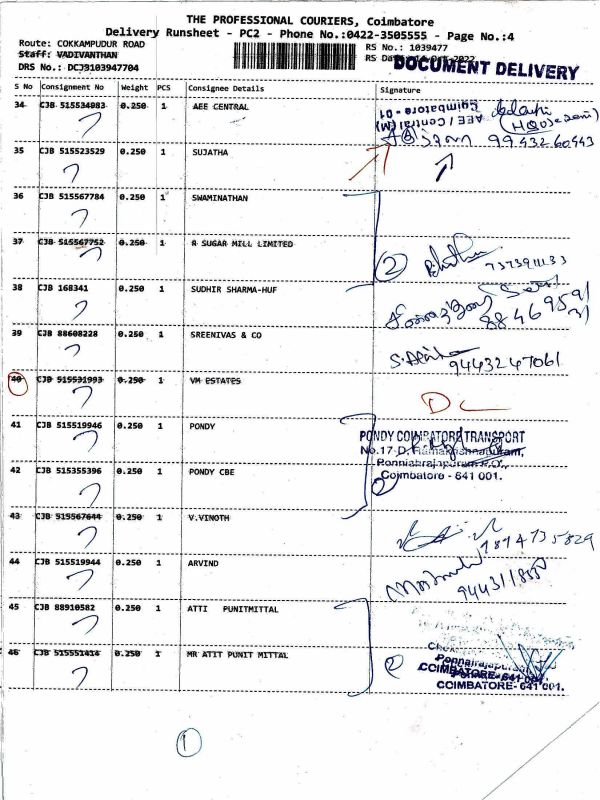 THE PROFESSIONAL COURIERS, Coimbatore
Delivery Runsheet - PC2 - Phone No.:0422-3505555 - Page No.:4
Route: COKKAMPUDUR ROAD
RS No.: 1039477
Staff: VADIVANTHAN
DRS No.: DCJ3103947704
DOCUMENT DELIVERY
S No Consignment No Weight PCS Consignee Details Signature
34 CJB 515534983 0.250 1 AEE CENTRAL
AEE / Central (M)
Coimbatore - 01
9943260443
35 CJB 515523529 0.250 1 SUJATHA
36 CJB 515567784 0.250 1 SWAMINATHAN
37 CJB 515567752 0.250 1 R SUGAR MILL LIMITED
2
38 CJB 168341 0.250 1 SUDHIR SHARMA-HUF
39 CJB 88608228 0.250 1 SREENIVAS & CO
9443247061
40 CJB 515531993 0.250 1 VM ESTATES
DC
41 CJB 515519946 0.250 1 PONDY
PONDY COIMBATORE TRANSPORT
No.17-D, Ramakrishnapuram,
Ponniahrajapuram P.O.,
Coimbatore - 641 001.
42 CJB 515355396 0.250 1 PONDY CBE
2
43 CJB 515567644 0.250 1 V.VINOTH
7894735829
44 CJB 515519944 0.250 1 ARVIND
45 CJB 88910582 0.250 1 ATTI PUNITMITTAL
46 CJB 515551414 0.250 1 MR ATIT PUNIT MITTAL
2
COIMBATORE-641 001.
COIMBATORE-641 001.
1